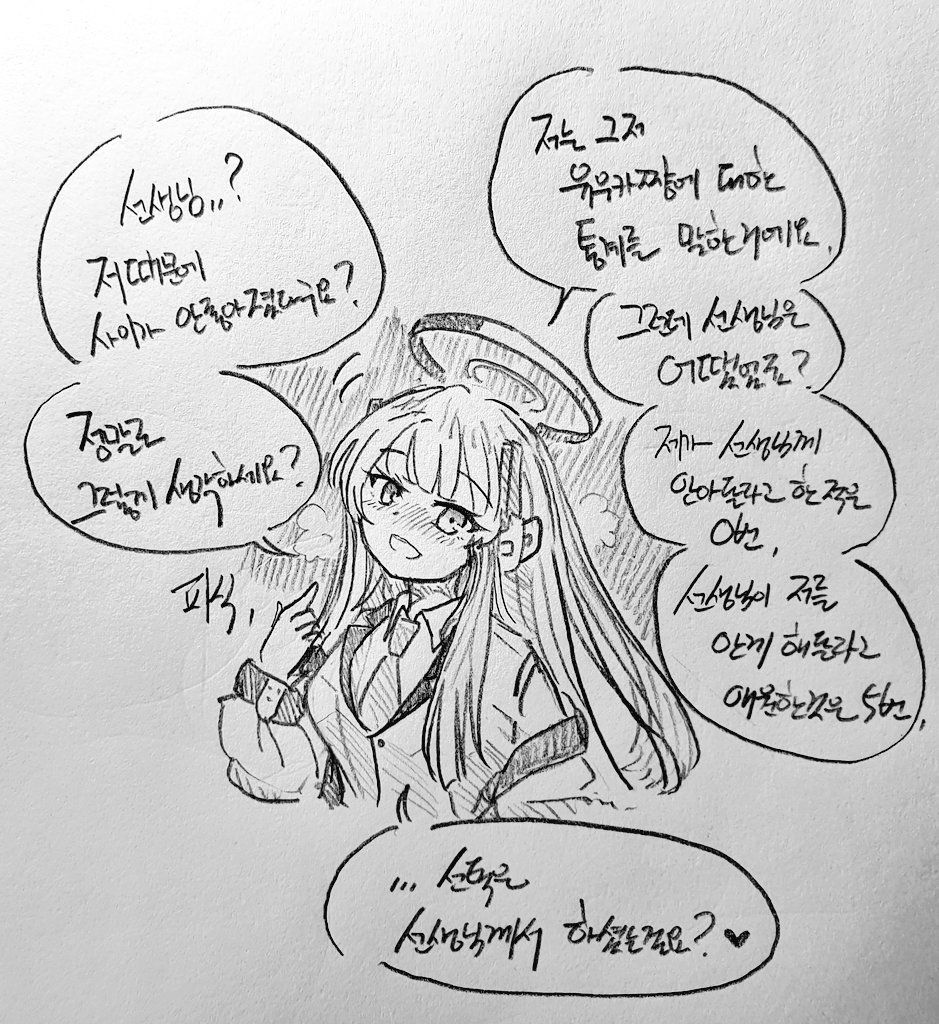 선생님..?
저때문에
사이가 안좋아졌다구요?
정말로
그렇게 생각하세요?
피식,
저는 그저
유우카쨩에 대한
통계를 말한거에요.
그런데 선생님은
어땠었죠?
제가 선생님께
안아달라고 한 적은
0번,
선생님이 저를
안게 해달라고
애원한것은 5번,
... 선택은
선생님께서 하셨는걸요? ♥